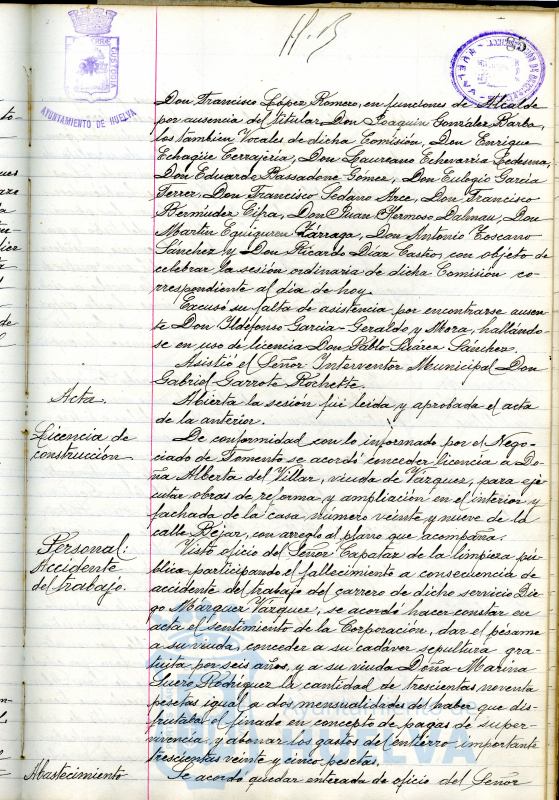 H. B
85
AYUNTAMIENTO DE HUELVA
HUELVA
Don Francisco López Romero, en funciones de Alcalde
por ausencia del titular Don Joaquin González Barba,
los tambien Vocales de dicha Comisión, Don Enrique
Echagüe Cerrajería, Don Laureano Echevarria Ledesma,
Don Eduardo Bassadone Gómez, Don Eulogio Garcia
Ferrer, Don Francisco Sedano Arce, Don Francisco
Bermudez Cifra, Don Juan Hermoso Dalmau, Don
Martin Equiguren Zárraga, Don Antonio Toscano
Sánchez y Don Ricardo Diaz Castro, con objeto de
celebrar la sesión ordinaria de dicha Comisión co-
rrespondiente al dia de hoy.
Excusó su falta de asistencia por encontrarse ausen-
te Don Ildefonso Garcia-Geraldo y Mora, hallando-
se en uso de licencia Don Pablo Suárez Sánchez.
Asistió el Señor Interventor Municipal Don
Gabriel Garrote Rochette.
Acta.
Abierta la sesión fué leida y aprobada el acta
de la anterior.
Licencia de
construcción
De conformidad con lo informado por el Nego-
ciado de Fomento se acordó conceder licencia a Do-
ña Alberta del Villar, viuda de Vázquez, para eje-
cutar obras de reforma y ampliación en el interior y
fachada de la casa número veinte y nueve de la
calle Béjar, con arreglo al plano que acompaña.
Personal:
Accidente
del trabajo.
Visto oficio del Señor Capataz de la limpieza pú-
blica participando el fallecimiento a consecuencia de
accidente del trabajo del carrero de dicho servicio Die-
go Márquez Vázquez, se acordó hacer constar en
acta el sentimiento de la Corporación, dar el pésame
a su viuda, conceder a su cadáver sepultura gra-
tuita por seis años, y a su viuda Doña Marina
Suero Rodríguez la cantidad de trescientas noventa
pesetas igual a dos mensualidades del haber que dis-
frutaba el finado en concepto de pagas de super-
vivencia, y abonar los gastos del entierro importante
trescientas veinte y cinco pesetas.
Abastecimiento
Se acordó quedar enterada de oficio del Señor
HUELVA